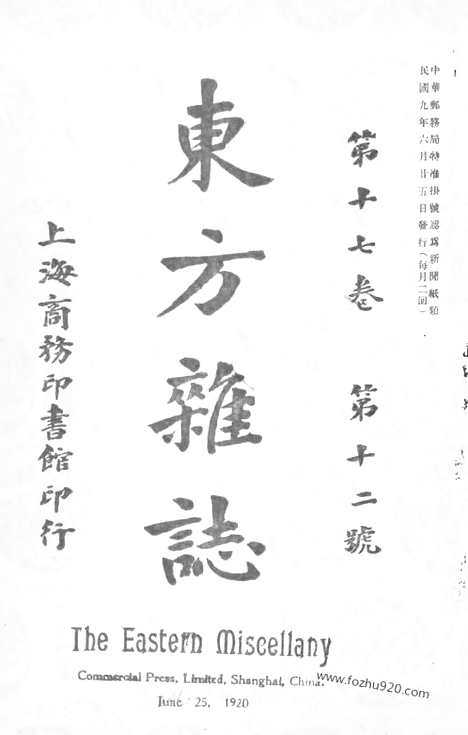 中華郵務局特准掛號認爲新聞紙類
民國九年六月廿五日發行(每月二回)
第十七卷 第十二號
東方雜誌
上海商務印書館印行
The Eastern Miscellany
Commercial Press, Limited, Shanghai, China.
June 25, 1920
www.fozhu920.com